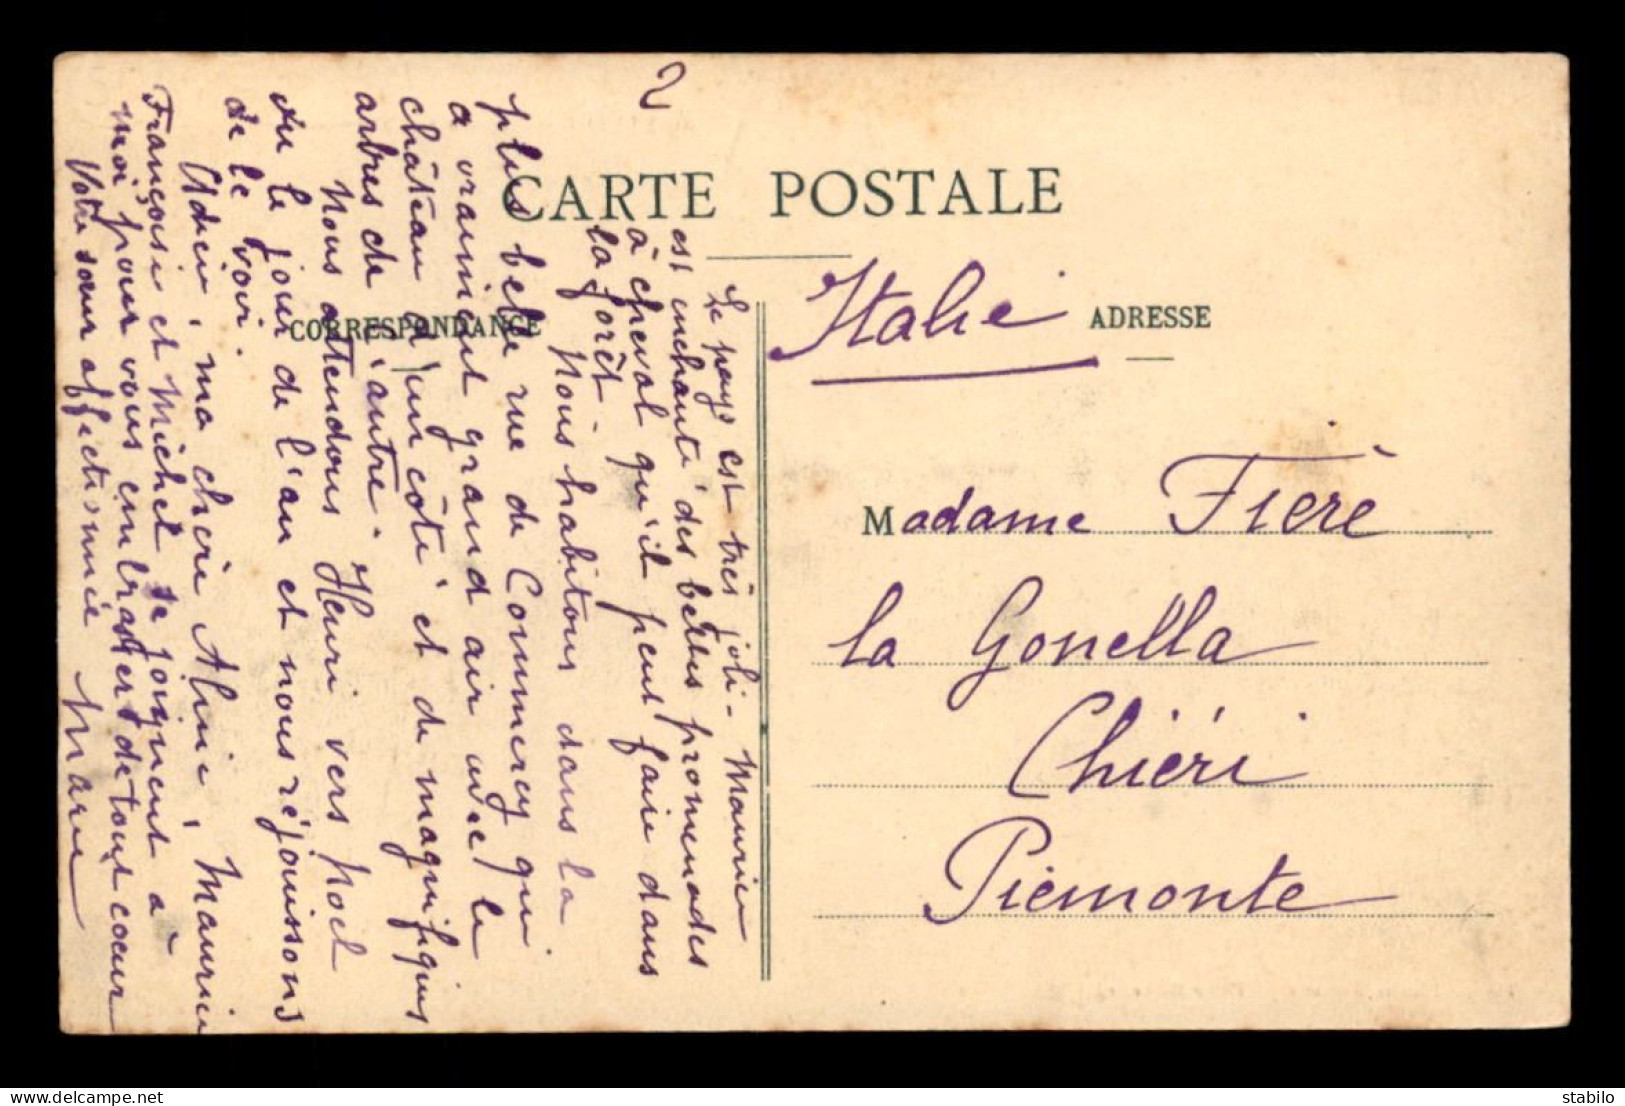 2
CARTE POSTALE
CORRESPONDANCE
ADRESSE
Le pays est très joli - Maurice
est enchanté des belles promenades
à cheval qu'il peut faire dans
la forêt.
Nous habitons dans la
plus belle rue de Commercy qui
a vraiment grand air avec le
château d'un côté et de magnifiques
arbres de l'autre.
Nous attendons Henri vers Noël
ou le jour de l'an et nous réjouissons
de le voir.
Adieu, ma chérie Aline, Maurice
Françoise et Michel se joignent à
moi pour vous embrasser de tout cœur
Votre sœur affectionnée
Marie
Italie
Madame Fieré
la Gonella
Chiéri
Piemonte
delcampe.net
stabilo